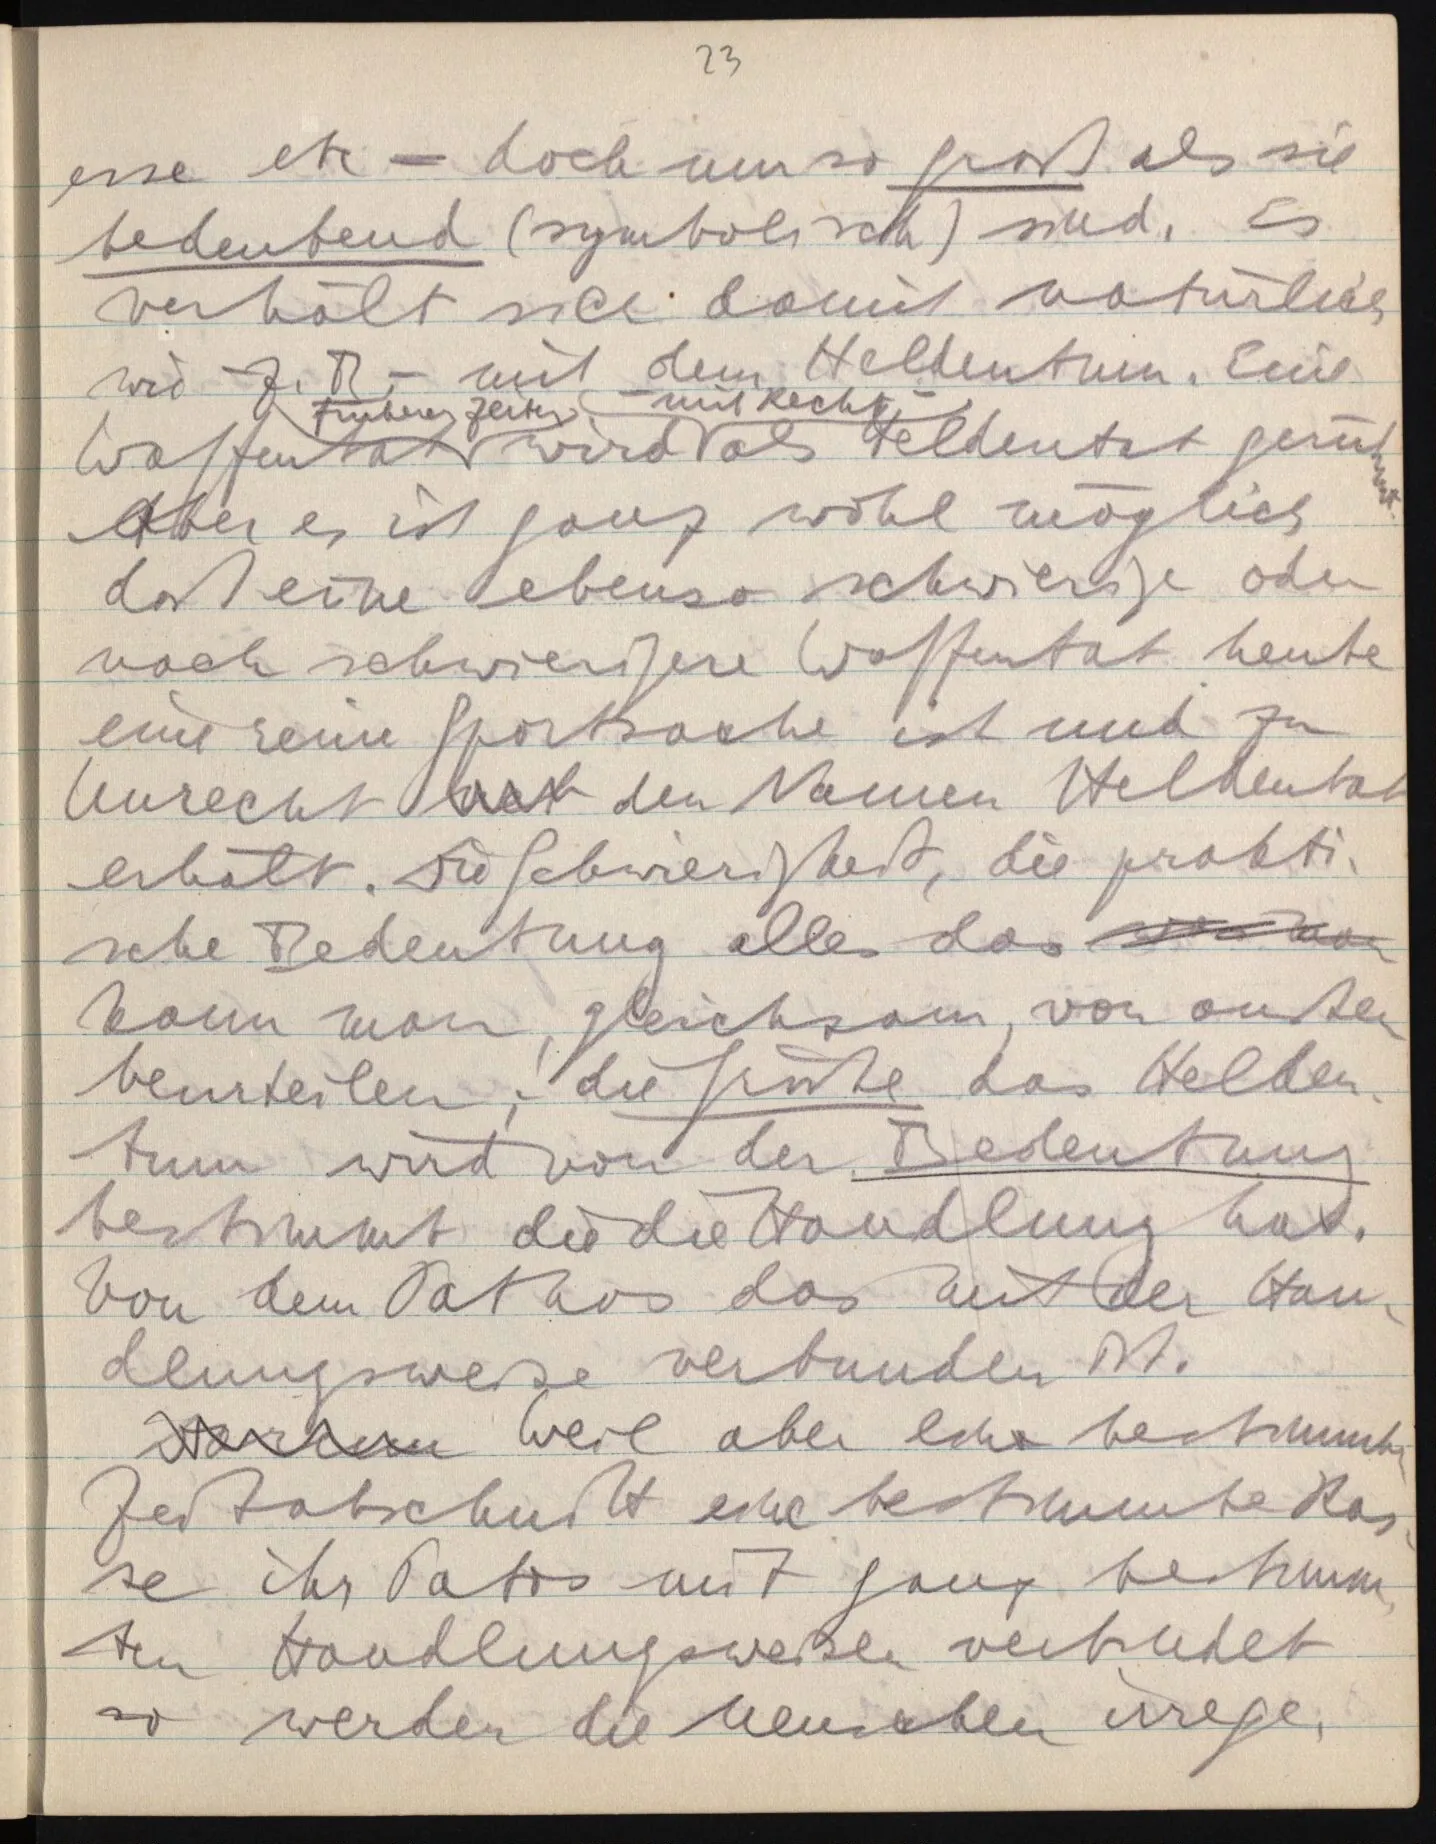 23
esse etc – doch nur so groß als sie
bedeutend (symbolisch) sind. Es
verhält sich damit natürlich
wie – z.B. – mit dem Heldentum. Eine
früherer Zeiten – mit Recht, –
Waffentat wird als Heldentat gerühmt.
Aber es ist ganz wohl möglich
daß eine ebenso schwierige oder
noch schwierigere Waffentat heute
eine reine Sportsache ist und zu
Unrecht den Namen Heldentat
erhält. Die Schwierigkeit, die prakti-
sche Bedeutung alles das
kann man, gleichsam, von außen
beurteilen; die Größe das Helden-
tum wird von der Bedeutung
bestimmt die die Handlung hat.
Von dem Pathos das mit der Han-
dlungsweise verbunden ist.
Warum Weil aber ein bestimmter
Zeitabschnitt eine bestimmte Ras-
se ihr Patos mit ganz bestimm-
ten Handlungsweisen verbindet
so werden die Menschen irrege-